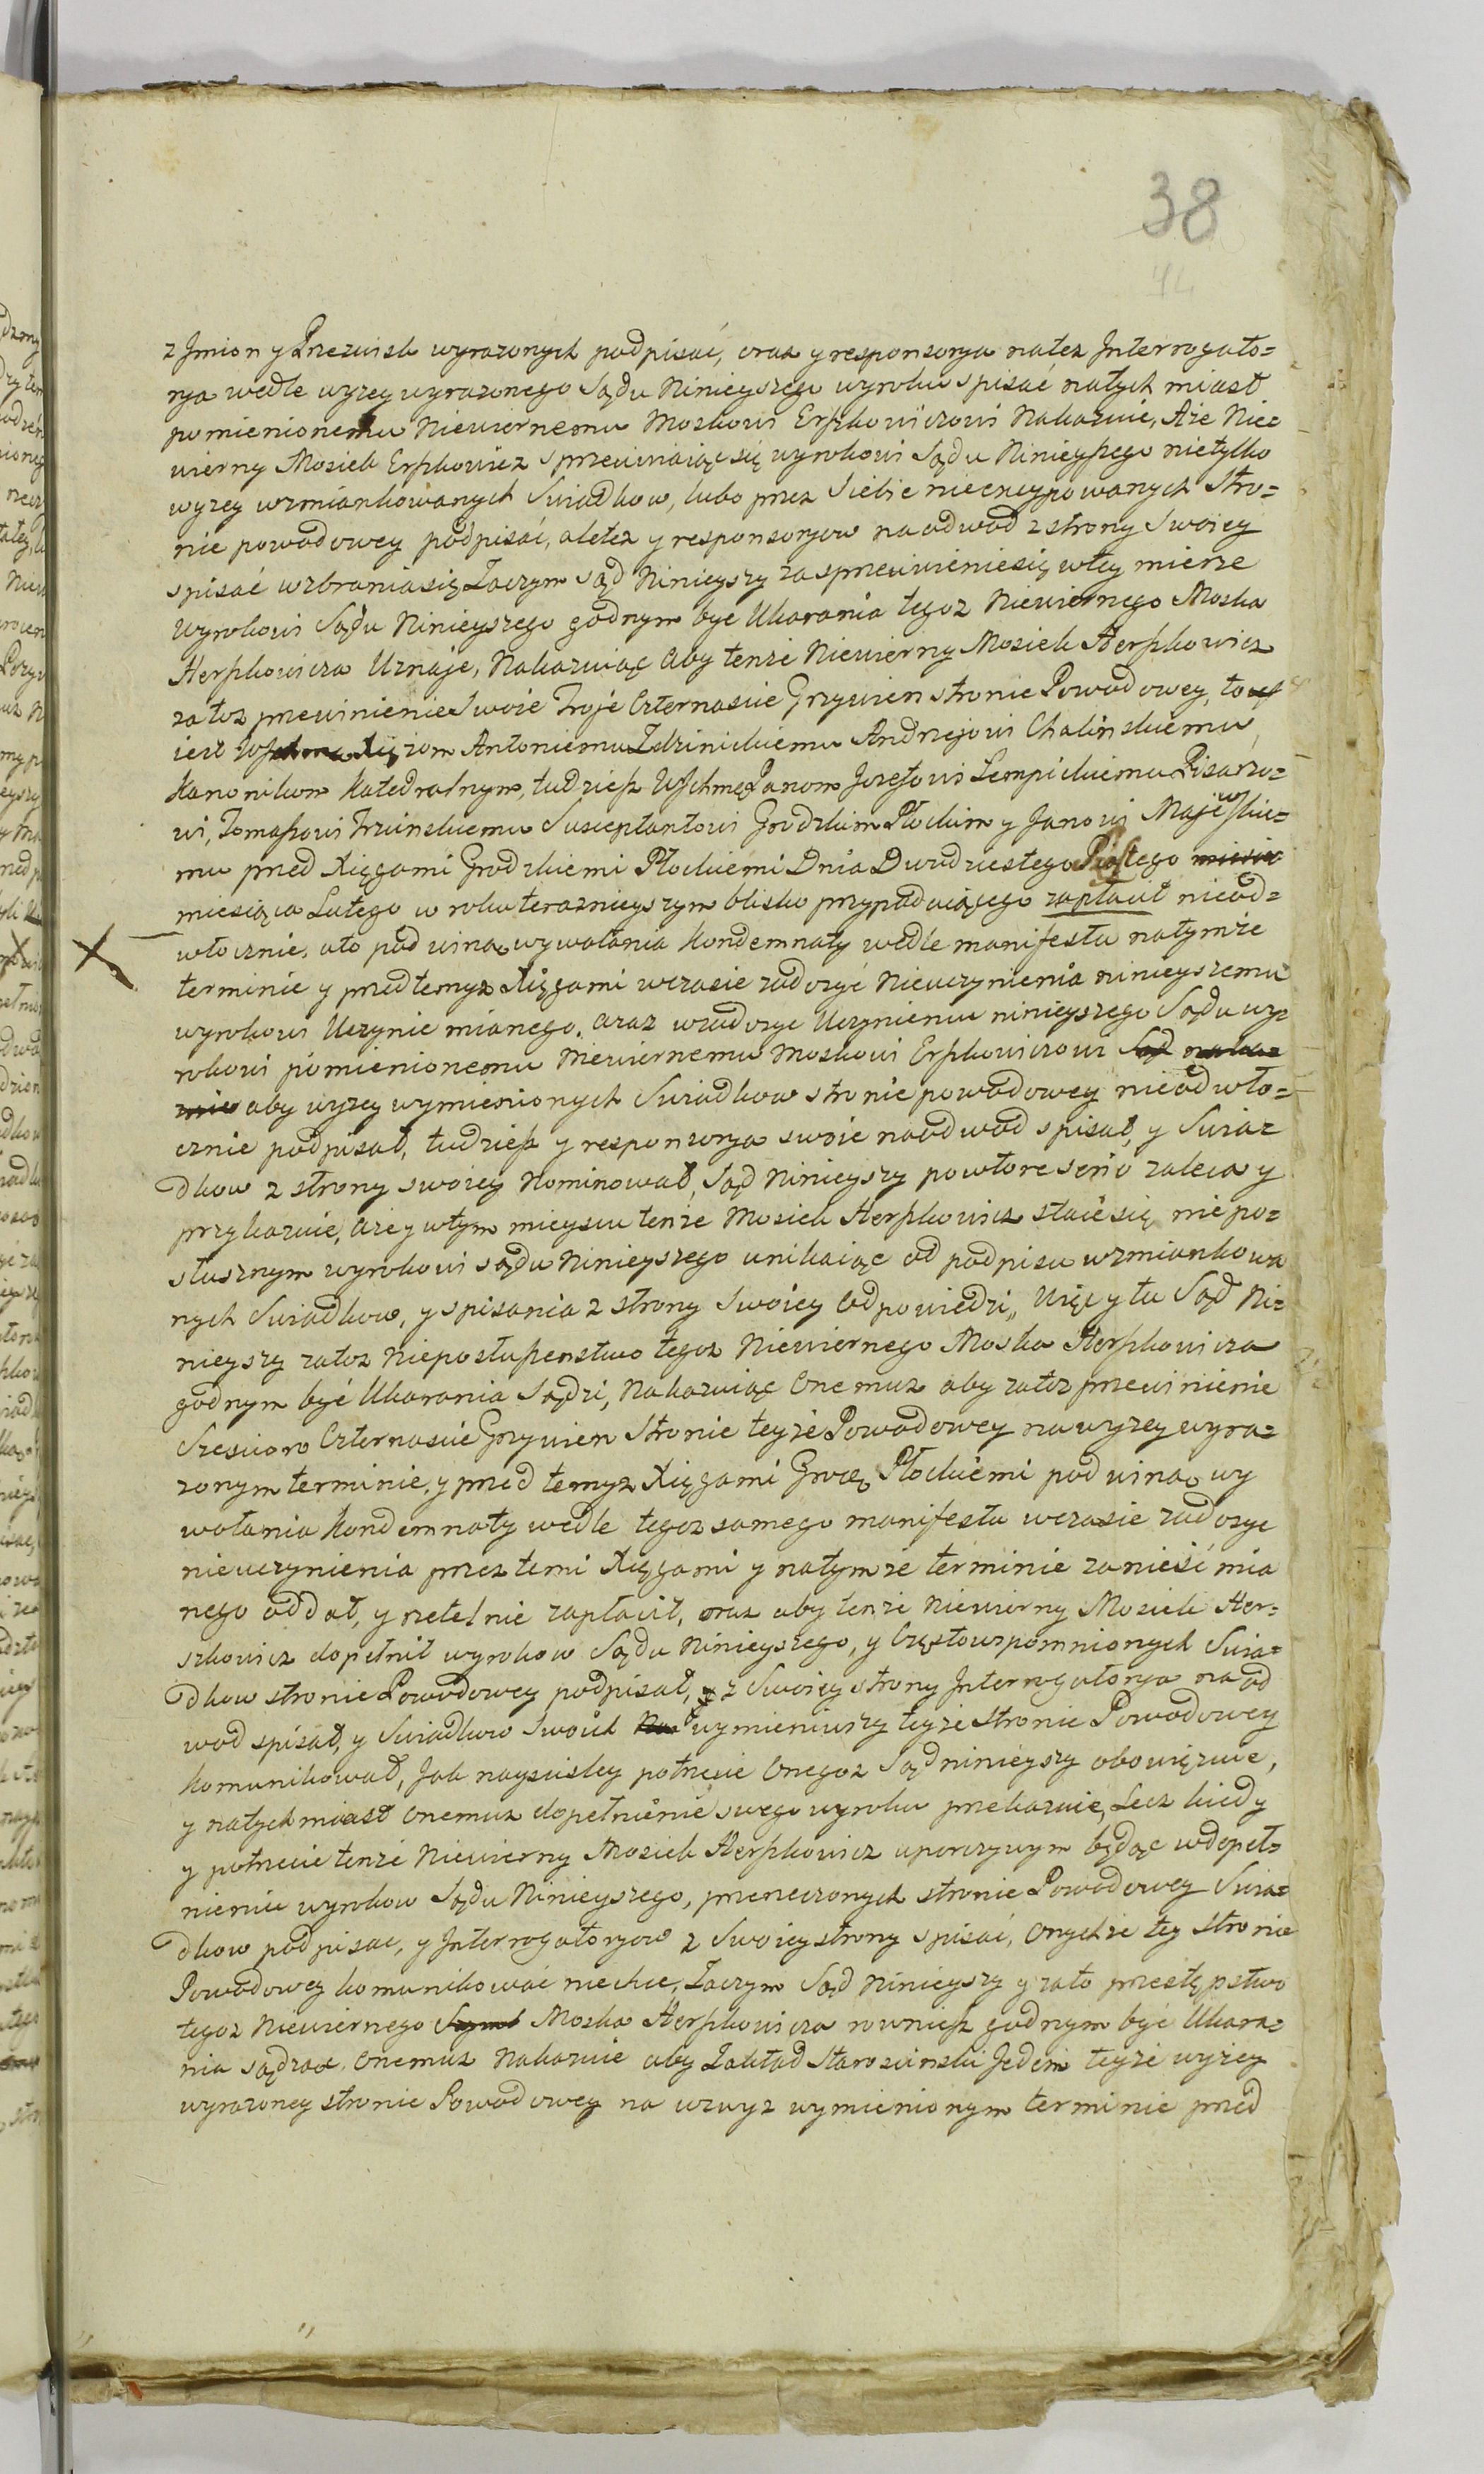 38
44
z Jmion y Przezwisk wyrazonych podpisać, oraz y responsorya natez Jnterrogato=
rya wedle wyzey wyrazonego Sądu Ninieyszego wyroku spisać natych miast
pomienionemu Niewiernemu Moskowi Erszkowiczowi Nakazuie, Aże Nie=
wierny Mosiek Erszkowicz sprzeciwiaiąc się wyrokowi Sądu Ninieyszego nietylko
wyzey wzmiankowanych Swiadkow, lubo przez Siebie nieexcypowanych Stro=
nie powodowey podpisać, aletez y responsoryow naodwod z strony Swoiey
spisać wzbrania się Zaczym Sąd Ninieyszy za sprzeciwienie się wtey mierze
Wyrokowi Sądu Ninieyszego godnym bydz Ukarania tegoz Niewiernego Moska
Herszkowicza Uznaje, Nakazuiąc Aby tenże Niewierny Mosiek Herszkowicz
zatoz przewinienie Swoie Troje Czternascie Grzywien stronie Powodowey, to
iest Xiężom Antoniemu Zdzinickiemu Andrzejowi Chalinskiemu,
Kanonikom Katedralnym, tudziesz Panom Jozefowi Lempickiemu Pisarzo=
wi, Tomaszowi Trzinskiemu Susceptantowi Grodzkim Płockim y Janowi Majewskie=
mu przed Xięgami Grodzkiemi Płockiemi Dnia Dwudziestego Piątego miesia
miesiąca Lutego w roku terazniejszym blisko przypadaiącego zapłacił nieod=
X włocznie, ato pod winą wywołania Kondemnaty wedle manifestu natymże
terminie y przed temyz Xięgami wczasie zadosyć Nieuczynienia ninieyszemu
wyrokowi Uczynic mianego. araz wzadosyc Uczynieniu ninieyszego Sądu wy=
rokowi pomienionemu Niewiernemu Moskowi Erszkowiczowi Sąd naka=
zuie aby wyzey wymienionych Swiadkow stronie powodowey nieodwło=
cznie podpisał, tudziesz y responsorya swoie naodwod spisał, y Swia=
dkow z strony swoiey Nominował, Sąd Ninieyszy powtore serio zaleca y
przykazuie, aże y wtym mieyscu tenże Mosiek Herszkowicz staie się niepo=
słusznym wyrokowi sądu Ninieyszego unikaiąc od podpisu wzmiankowa
nych Swiadkow, y spisania z strony Swoiey Odpowiedzi,, Więc y tu Sąd Ni=
nieyszy zatoz Nieposłuszenstwo tegoz Niewiernego Moska Herszkowicza
godnym być Ukarania Sądzi, Nakazuiąc Onemuz aby zatoz przewinienie
Szescioro Czternascie Grzywien Stronie teyże Powodowey na wyzey wyra=
zonym terminie, y przed temyz Xięgami Płockiemi pod winą wy
wołania Kondemnaty wedle tegoz samego manifestu wczasie zadosyc
nieuczynienia przez temi Xięgami y natymże terminie zanieść mia
nego oddał, y rzetelnie zapłacił, oraz aby tenże Niewierny Mosiek Her=
szkowicz dopełnił wyrokow Sądu Ninieyszego, y Częstowspomnionych Swia=
dkow stronie Powodowey podpisał, y z Swoiey strony Jnterrogatorya na od
wod spisał, y Swiadkow Swoich wymieniwszy teyże stronie Powodowey
Komunikował, Jak nayscisley potrzecie Onegoz Sąd ninieyszy obowięzuie,
y natychmiast onemuz dopełnienie swego wyroku przekazuie, Lecz kiedy
y potrzecie tenże Niewierny Mosiek Herszkowicz uporczywym będąc wdopeł=
nieniu wyrokow Sądu Ninieyszego, przerzeczonych stronie Powodowey Swia=
dkow podpisac, y Jnterrogatoryow z Swoiey strony spisać, Onychże tey stronie
Powodowey komunikować niechce, Zaczym Sąd Ninieyszy y zato przestępstwo
tegoz Niewiernego Moska Herszkowicza rowniesz godnym być Ukara=
nia sądząc Onemuz Nakazuie aby Zakład Staroscinski Jeden teyże wyzey
wyrazoney stronie Powodowey na wzwyz wymienionym terminie przed